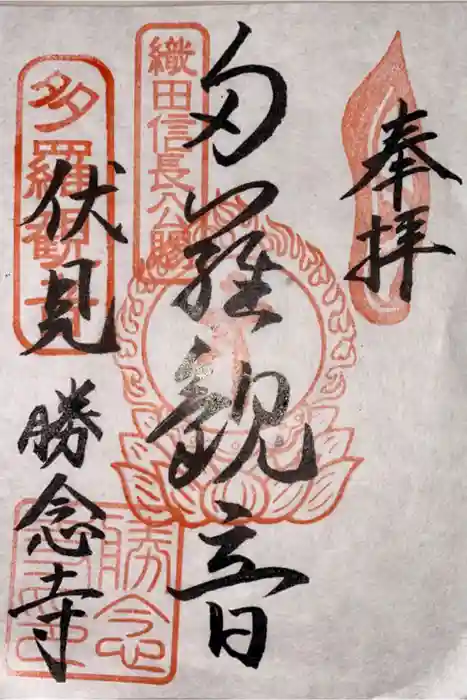 奉拝
多羅観音
織田信長公賜
多羅観音
伏見 勝念寺
勝念
寺